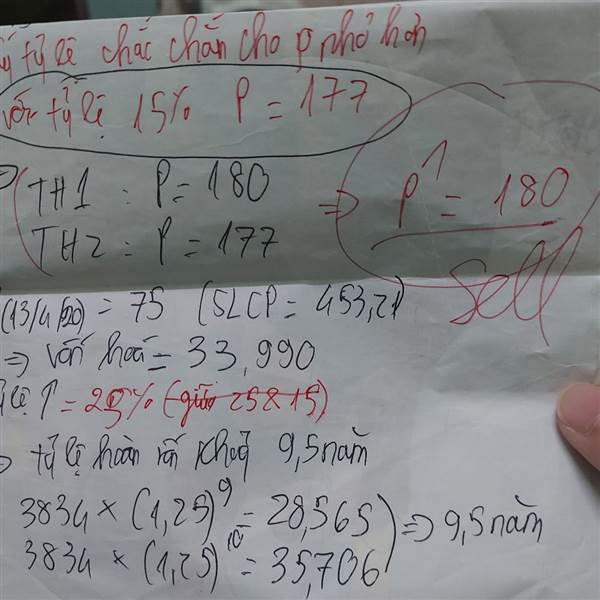 tỷ lệ chắc chắn cho P nhỏ hơn
với tỷ lệ 15% P = 177
TH1 : P = 180
TH2 : P = 177
=> P1 = 180
sell
(13/4/20) = 75 (SLCP = 453,21)
=> vốn hoá = 33,990
lệ ↑ = 25% (giữa 25&15)
tỷ lệ hoàn vốn khoảng 9,5 năm
3834 × (1,25)^9 = 28,565
3834 × (1,25)^10 = 35,706
=> 9,5 năm